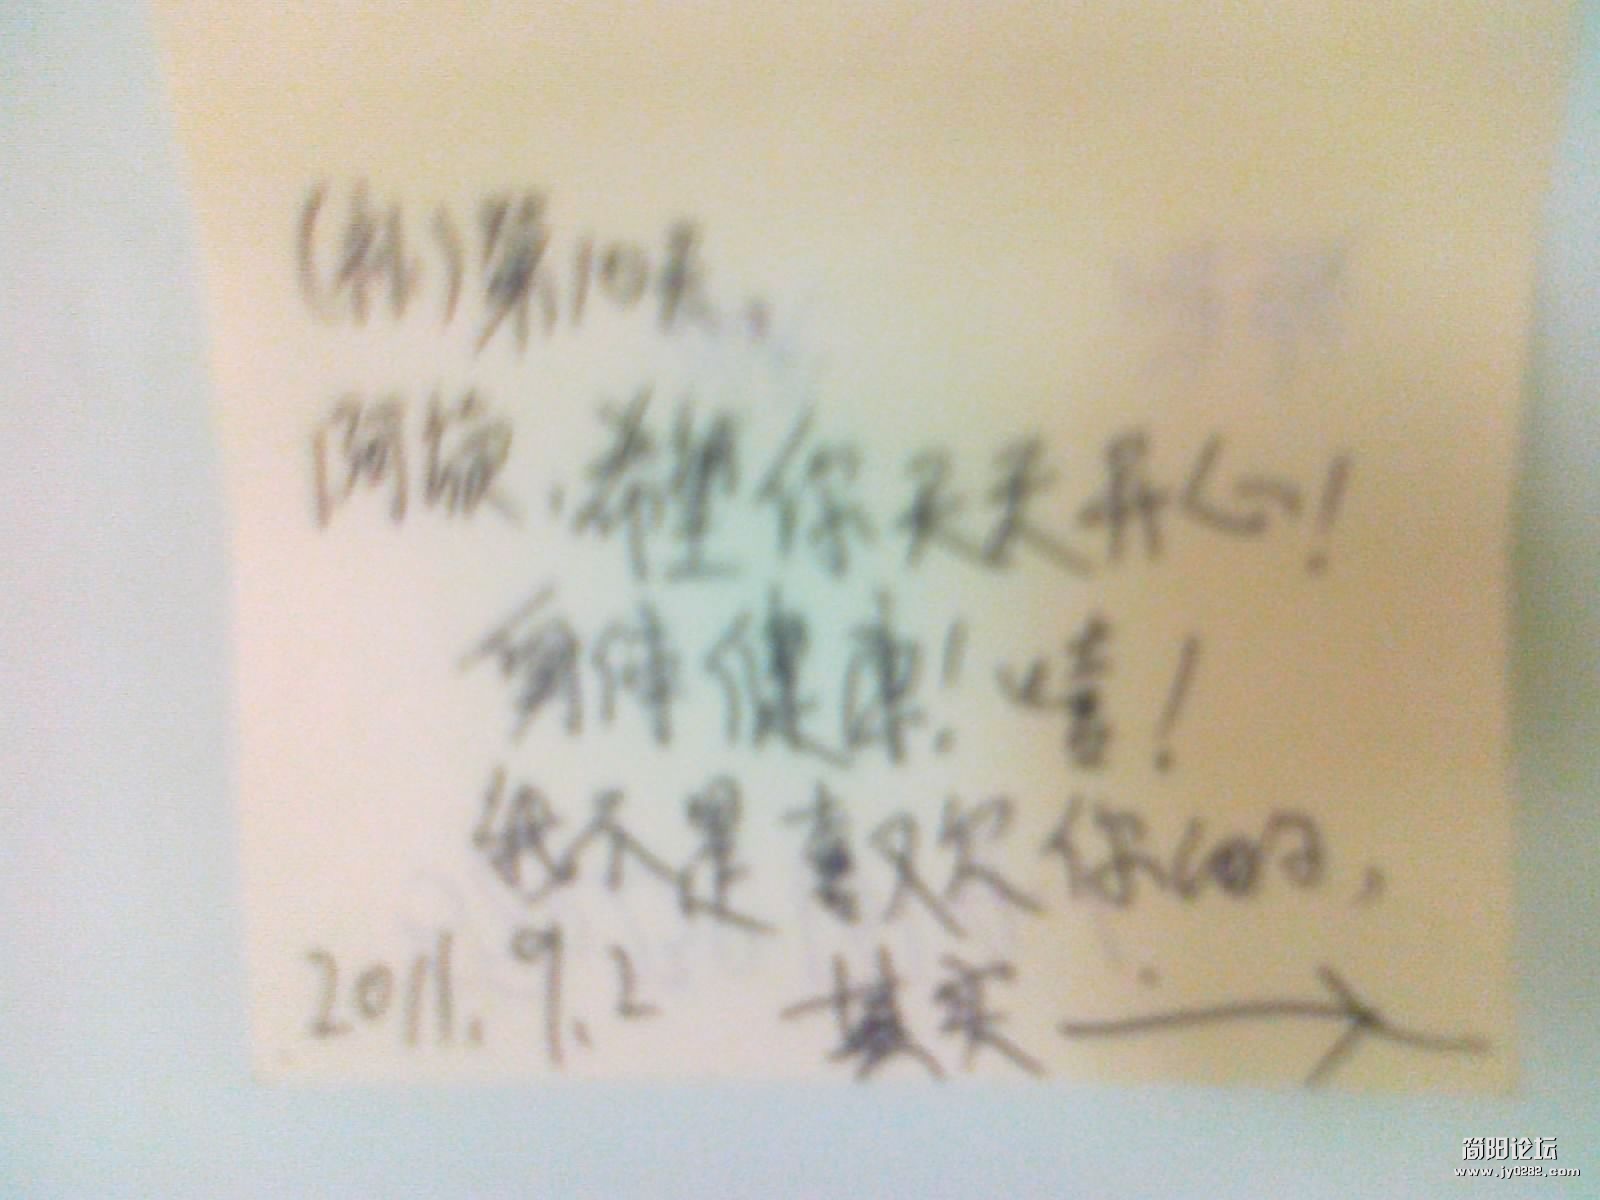 (补)第10天,
阿,希望你天天开心!
身体健康!嘻!
我不是喜欢你的,
2011.9.2 其实 →
简阳论坛
www.jy0282.com